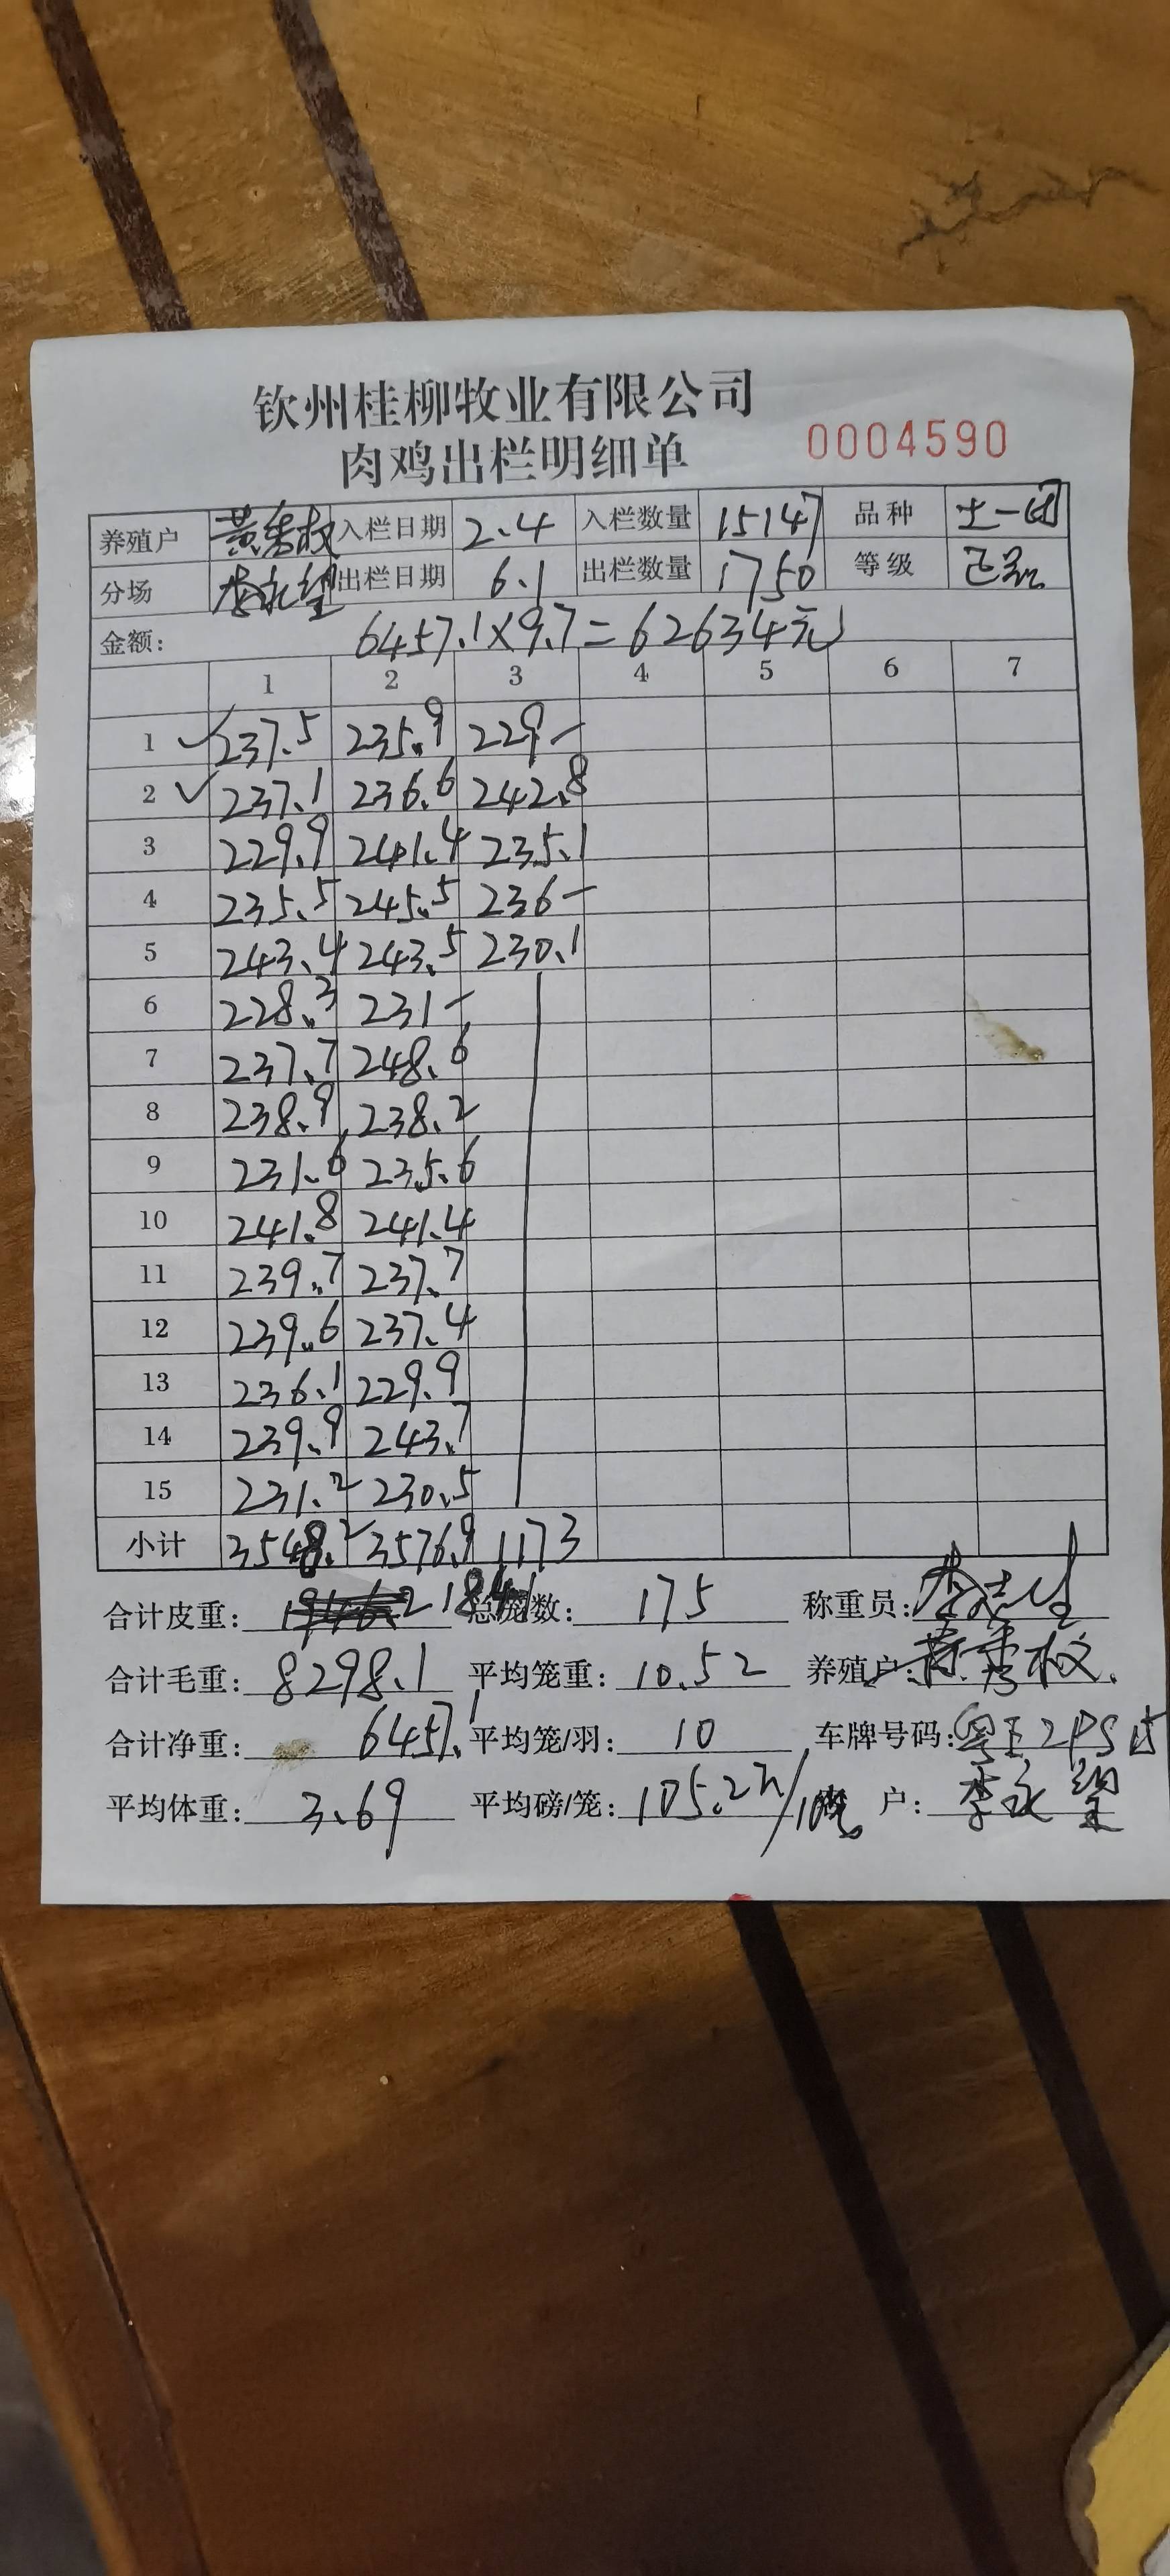 钦州桂柳牧业有限公司
肉鸡出栏明细单 0004590
养殖户 黄秀权 入栏日期 2.4 入栏数量 15147 品种 土一
分场 李永 出栏日期 6.1 出栏数量 1750 等级 正
金额: 6457.1×9.7=62634元
1 2 3 4 5 6 7
1 237.5 235.9 229-
2 237.1 236.6 242.8
3 229.9 241.4 235.1
4 235.5 245.5 236-
5 243.4 243.5 230.1
6 228.3 231-
7 237.7 248.6
8 238.9 238.2
9 231.6 235.6
10 241.8 241.4
11 239.7 237.7
12 239.6 237.4
13 236.1 229.9
14 239.9 243.7
15 231.2 230.5
小计 3548.2 3576.9 1173
合计皮重: 1841 总笼数: 175 称重员: 李志
合计毛重: 8298.1 平均笼重: 10.52 养殖户: 黄秀权
合计净重: 6457.1 平均笼/羽: 10 车牌号码: 粤E2PS
平均体重: 3.69 平均磅/笼: 105.2 户: 李永